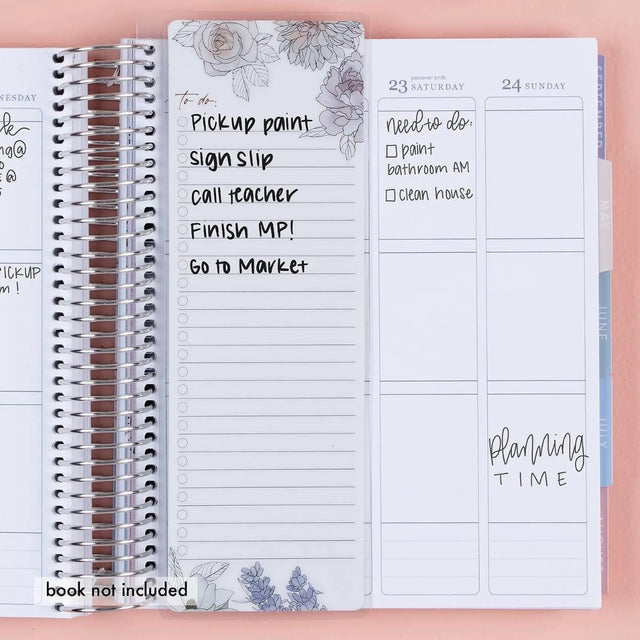 NESDAY
ng@
E @
PICKUP
m!
To do:
Pickup paint
Sign Slip
call teacher
Finish MP!
Go to Market
23 passover ends SATURDAY
need to do:
paint
bathroom AM
clean house
24 SUNDAY
planning
TIME
SEPTEMBER
MAY
JUNE
JULY
book not included